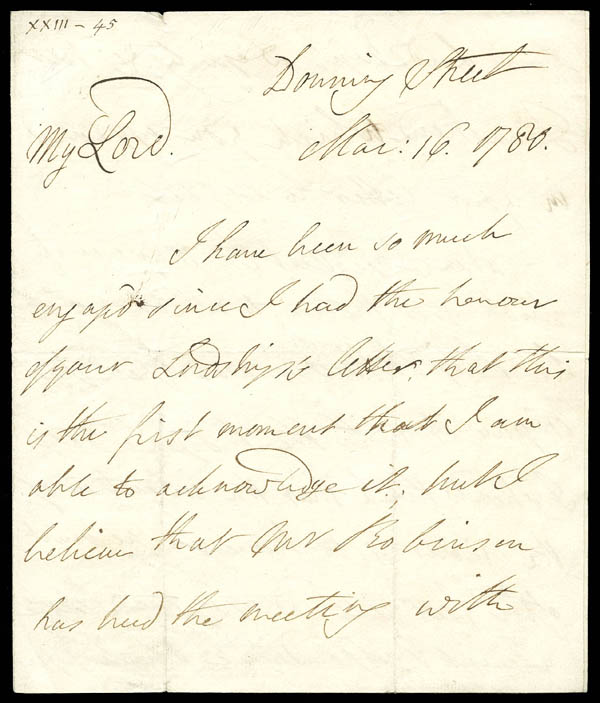 XXIII - 45
Downing Street
My Lord. Mar: 16. 1780.
I have been so much
engag'd since I had the honour
of your Lordship's letter, that this
is the first moment that I am
able to acknowledge it; but I
believe that Mr Robinson
has had the meeting with